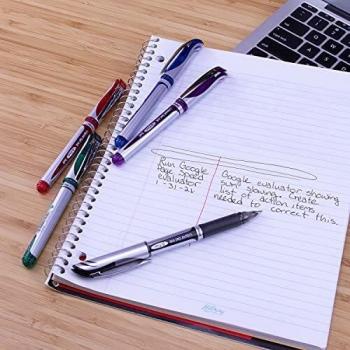 Run Google
Page Speed
evaluator
1-31-21
Google evaluator showing
our slowing. Create
list of action items
needed to correct this.